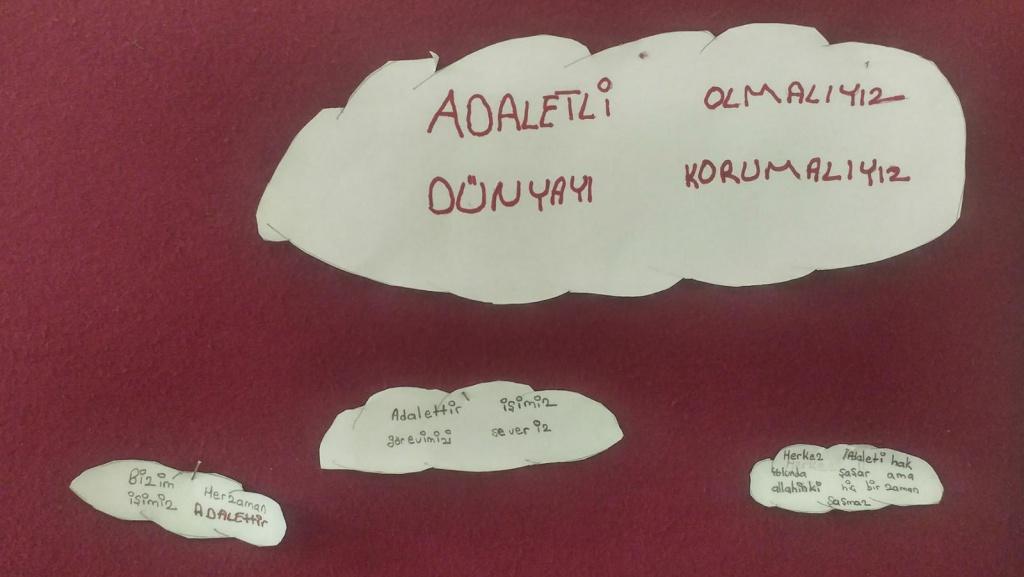 ADALETLİ OLMALIYIZ
DÜNYAYI KORUMALIYIZ
Adalettir işimiz
görevimizi severiz
Bizim Herzaman
işimiz ADALETTİR
Herkez Adaleti hak
yolunda şaşar ama
allahinki hiç bir zaman
şaşmaz